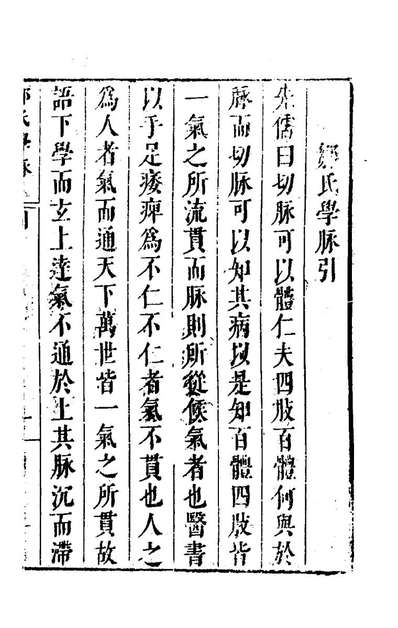 鄒氏學脉引
先儒曰切脉可以體仁夫四肢百體何與於
脉而切脉可以知其病以是知百體四肢皆
一氣之所流貫而脉則所從候氣者也醫書
以手足痿痺為不仁不仁者氣不貫也人之
為人者氣而通天下萬世皆一氣之所貫故
語下學而玄上達氣不通於上其脉沉而滯